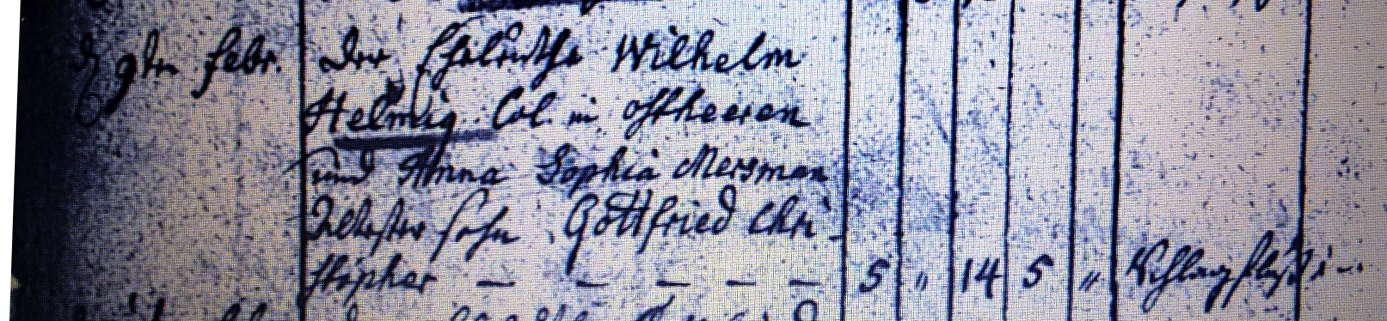 d 9ten Febr. Der Eheleuthe Wilhelm
Helmig Col. in Ostheeren
und Anna Sophia Mersman
Ältester Sohn Gottfried Chri-
stopher — — — — — 5 " 14 5 " Schlagfluß